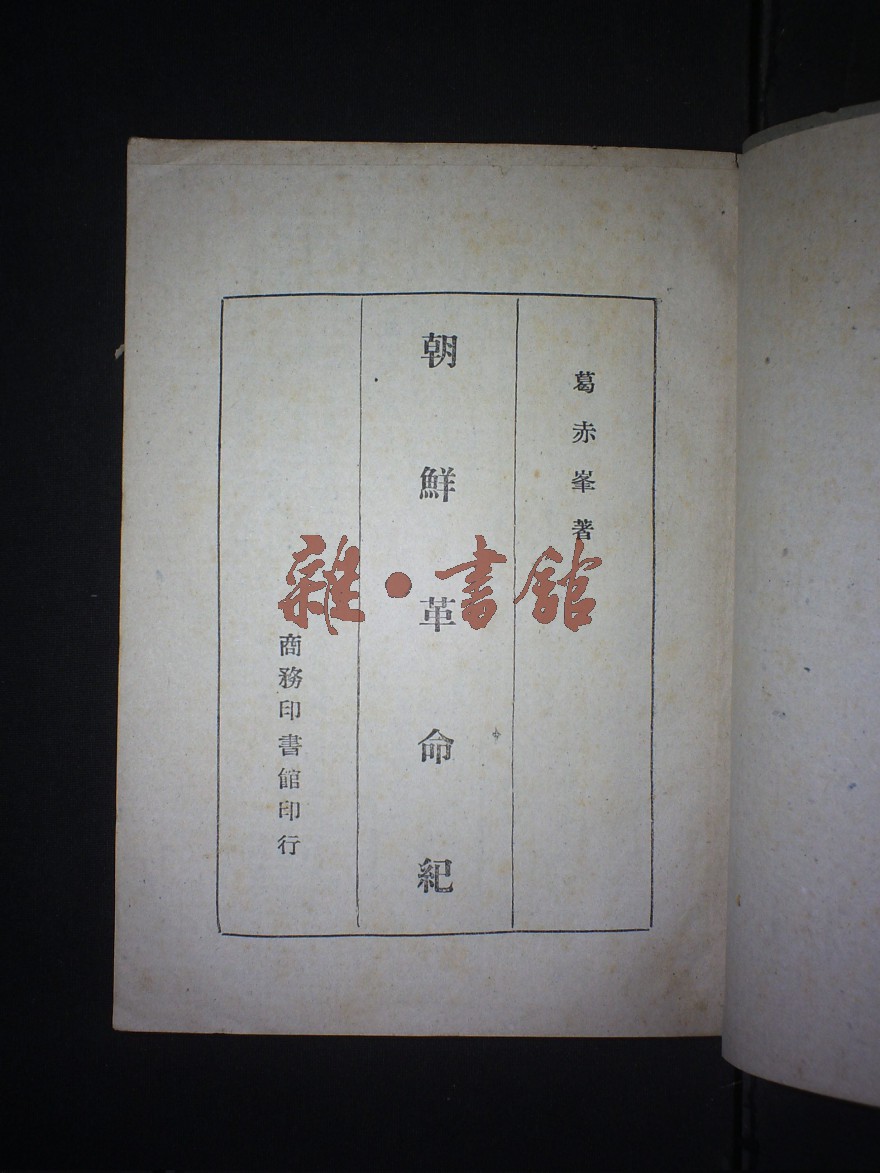 葛赤峯著
朝鮮革命紀
商務印書館印行
雜·書館